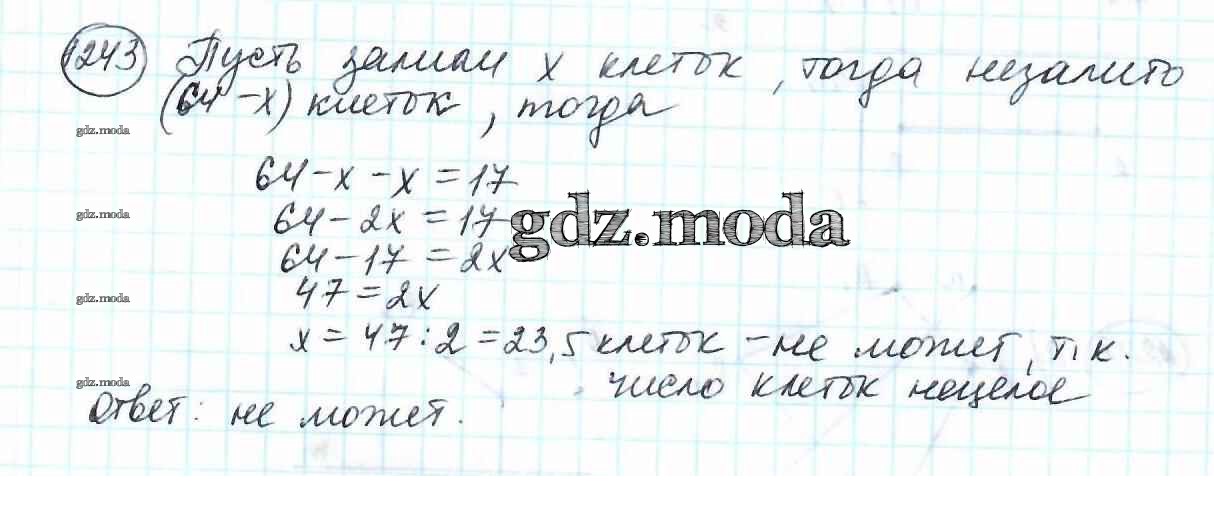 1243 Пусть залили x клеток, тогда незалито
(64-x) клеток, тогда
gdz.moda
64-x-x=17
gdz.moda
64-2x=17
gdz.moda
64-17=2x
gdz.moda
47=2x
x=47:2=23,5 клеток - не может, т.к.
число клеток нецелое
gdz.moda
Ответ: не может.